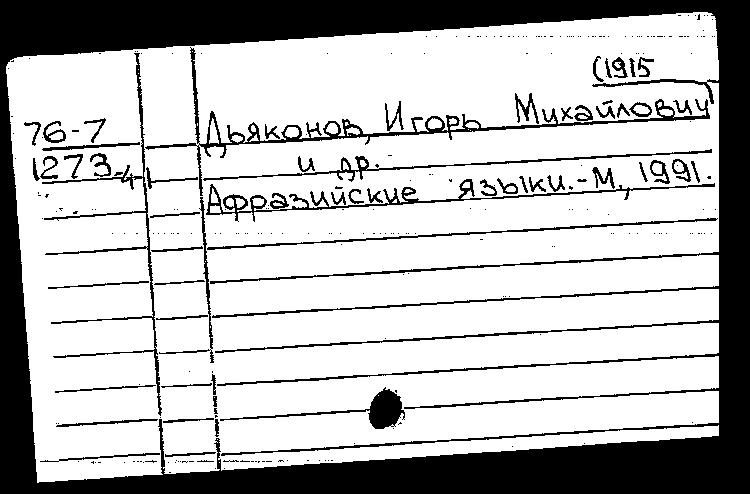 (1915
76-7 Дьяконов, Игорь Михайлович)
1273-4 и др.
Афразийские языки.-М., 1991.